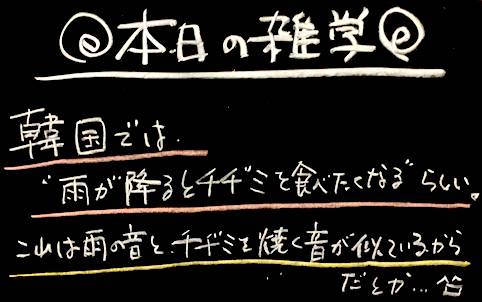 本日の雑学
韓国では、
"雨が降るとチヂミを食べたくなる"らしい。
これは雨の音と、チヂミを焼く音が似ているから
だとか…